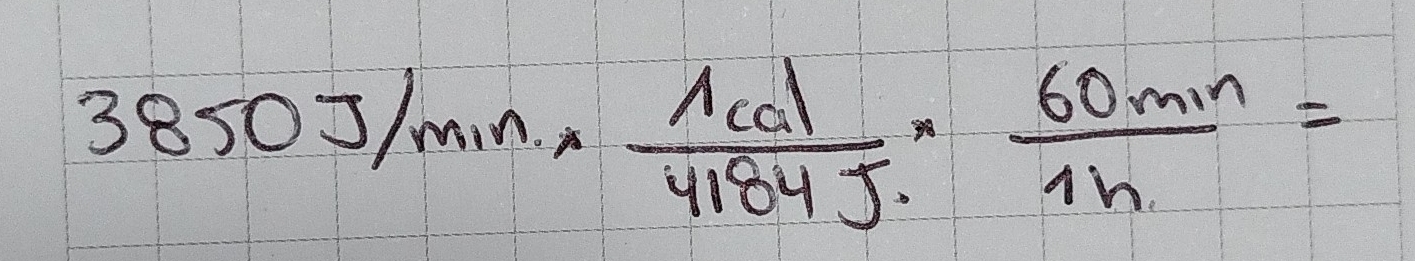 3850 J/min. * 1cal/4184 J. * 60min/1h. =